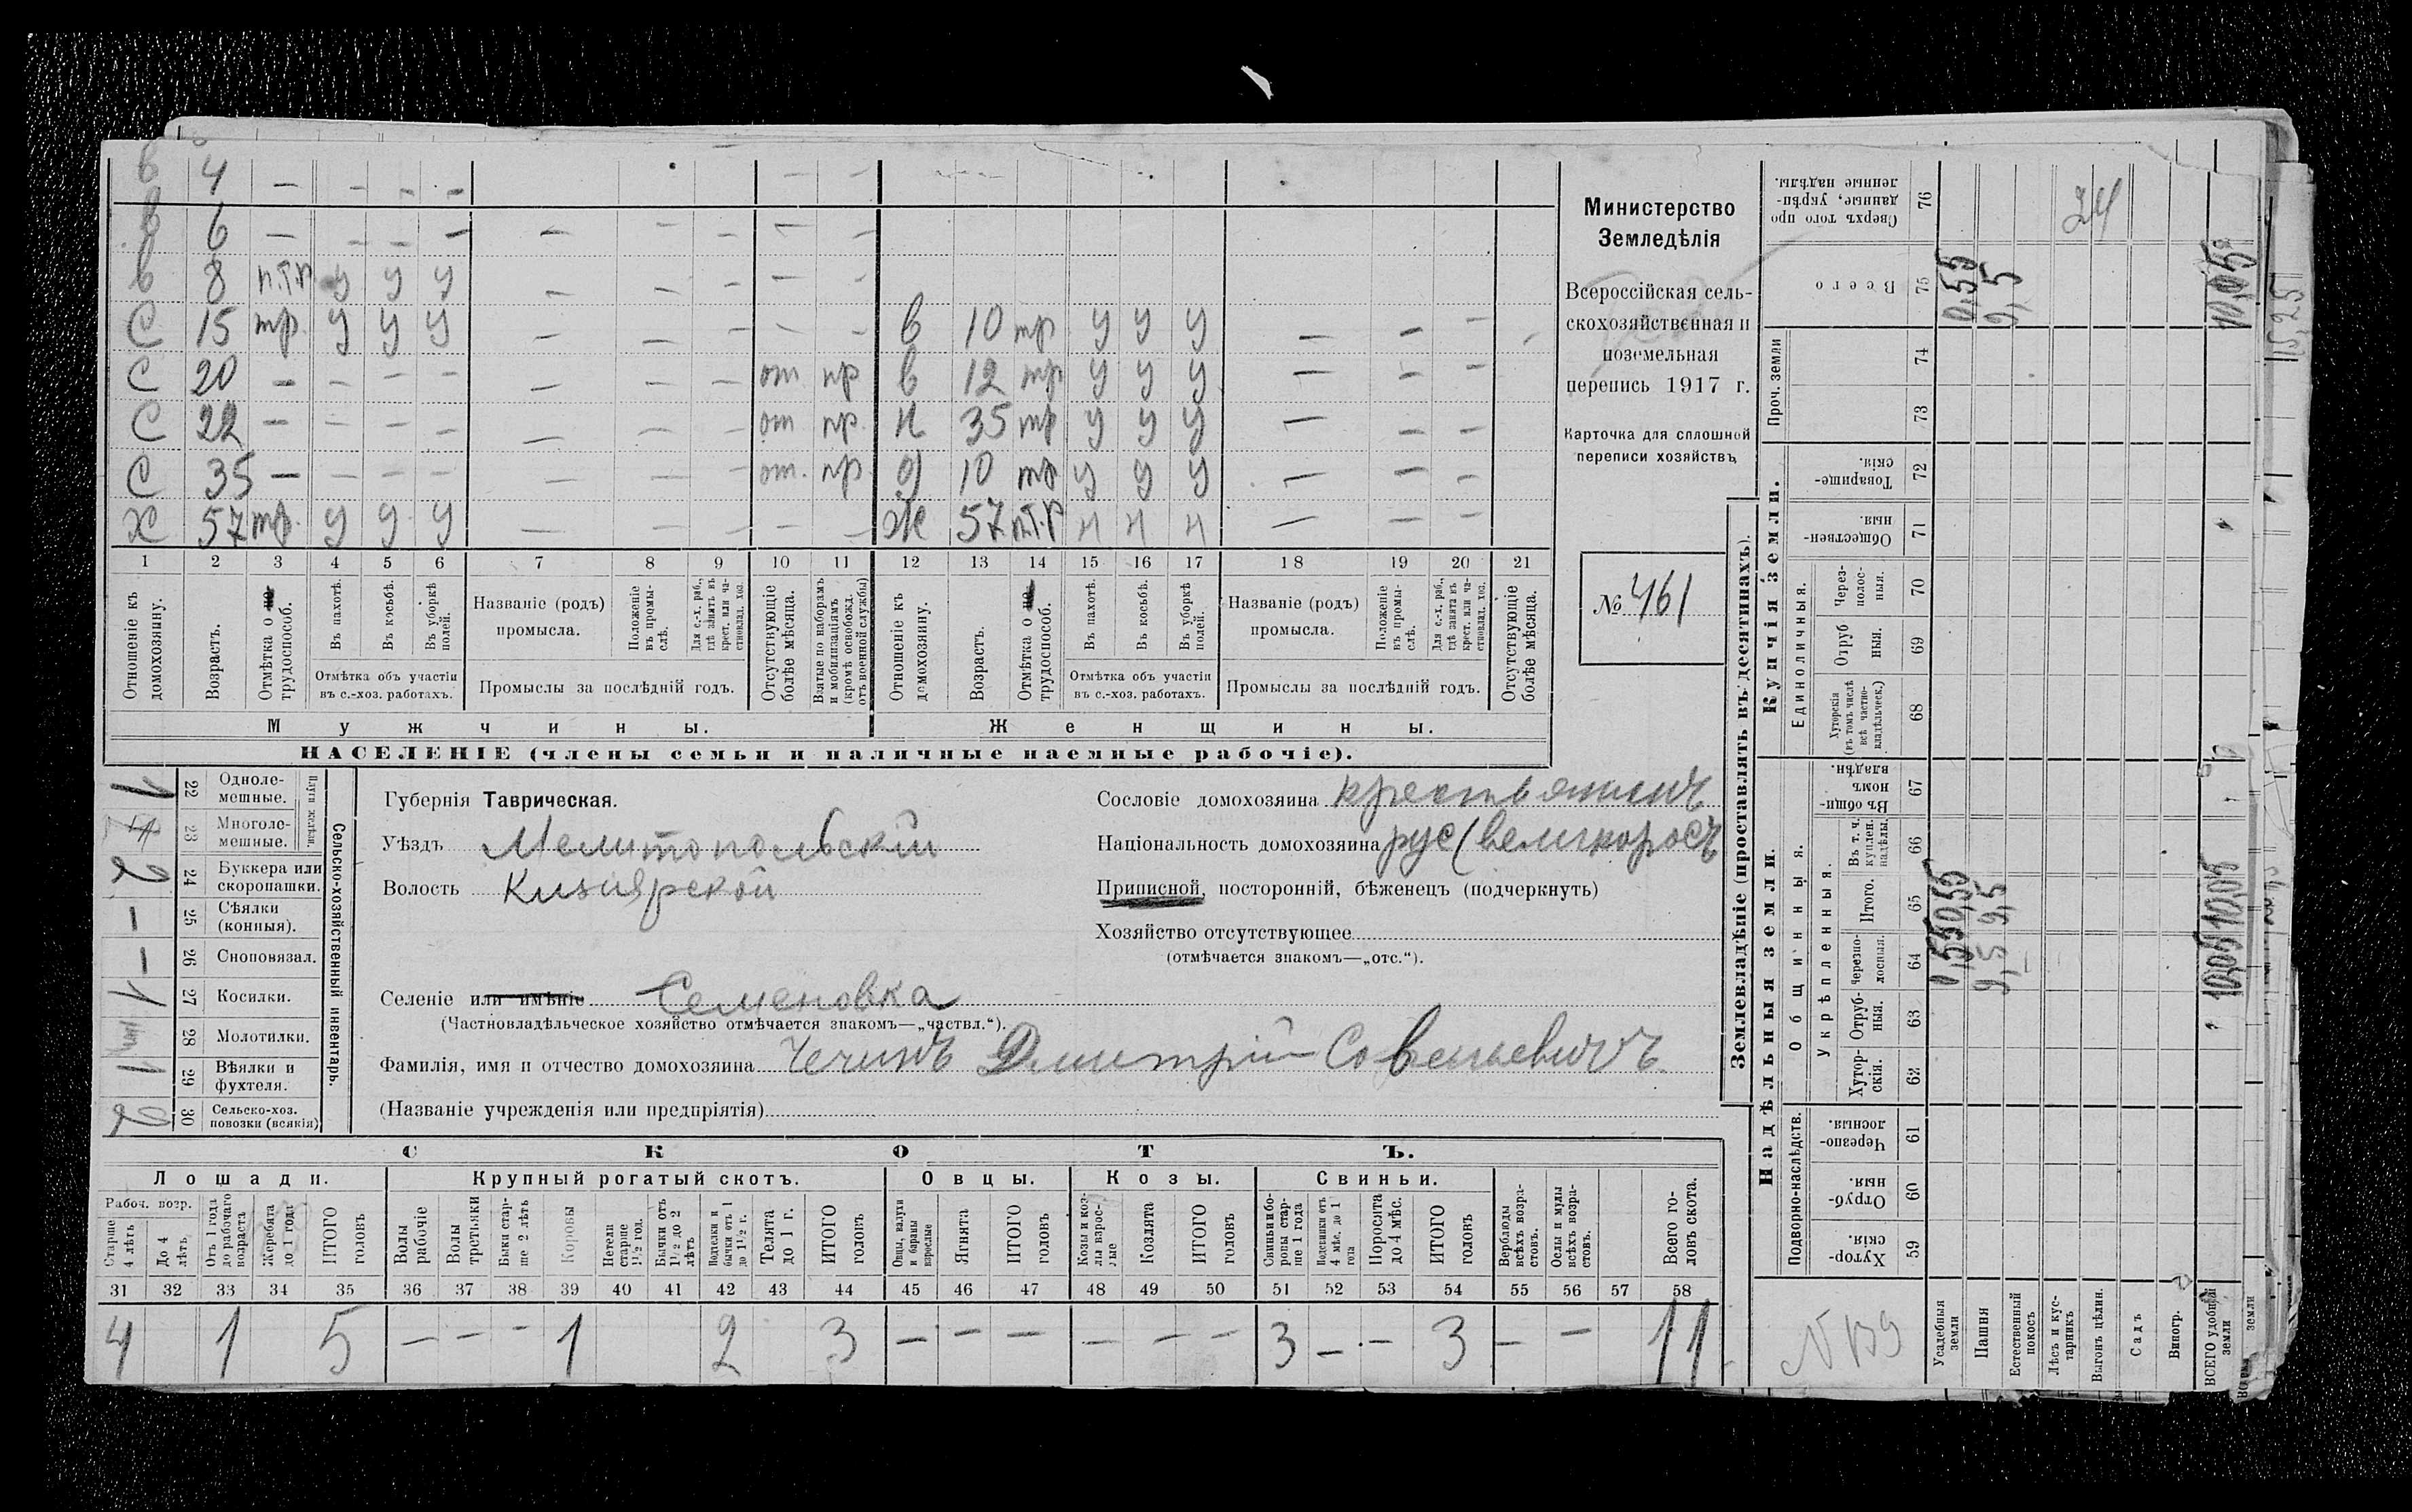 в 4 — — — — — —
в 6 — — — — — — — — —
в 8 п.т.р у у у — — — — —
С 15 тр. у у у — — — — — в 10 тр у у у — — —
С 20 — — — — — — — от пр в 12 тр у у у — — —
С 22 — — — — — — — от пр. н 35 тр у у у — — —
С 35 — — — — — — — от. пр д 10 тр у у у — — —
Х 57 тр. у у у — — — — — Ж 57 п.т.р н н н — — —
1 2 3 4 5 6 7 8 9 10 11 12 13 14 15 16 17 18 19 20 21
Отношеніе къ домохозяину.
Возрастъ.
Отмѣтка о трудоспособ.
Въ пахотѣ.
Въ косьбѣ.
Въ уборкѣ полей.
Отмѣтка объ участіи въ с.-хоз. работахъ.
Названіе (родъ) промысла.
Положеніе въ промы-слѣ.
Для с.-х. раб., гдѣ занятъ въ крест. или ча-стновлад. хоз.
Промыслы за послѣдній годъ.
Отсутствующіе болѣе мѣсяца.
Взятые по наборамъ и мобилизаціямъ (кромѣ освобожд. отъ военной службы)
Отношеніе къ домохозяину.
Возрастъ.
Отмѣтка о трудоспособ.
Въ пахотѣ.
Въ косьбѣ.
Въ уборкѣ полей.
Отмѣтка объ участіи въ с.-хоз. работахъ.
Названіе (родъ) промысла.
Положеніе въ промы-слѣ.
Для с.-х. раб., гдѣ занята въ крест. или ча-стновлад. хоз.
Промыслы за послѣдній годъ.
Отсутствующіе болѣе мѣсяца.
Мужчины. Женщины.
НАСЕЛЕНІЕ (члены семьи и наличные наемные рабочіе).
Министерство
Земледѣлія
Всероссійская сель-
скохозяйственная и
поземельная
перепись 1917 г.
Карточка для сплошной
переписи хозяйствъ
№ 461
Сельско-хозяйственный инвентарь.
Плуги желѣзн.
1 22 Одноле-мешные.
23 Многоле-мешные.
2 24 Буккера или скоропашки.
— 25 Сѣялки (конныя).
— 26 Сноповязал.
1 27 Косилки.
28 Молотилки.
1 29 Вѣялки и фухтеля.
2 30 Сельско-хоз. повозки (всякія)
Губернія Таврическая.
Уѣздъ Мелитопольскій
Волость Кизиярской
Селеніе или имѣніе Семеновка
(Частновладѣльческое хозяйство отмѣчается знакомъ—„частвл.“).
Фамилія, имя и отчество домохозяина Чечинъ Дмитрій Савельевичъ
(Названіе учрежденія или предпріятія)
Сословіе домохозяина крестьянинъ
Національность домохозяина рус (великоросъ
Приписной, посторонній, бѣженецъ (подчеркнуть)
Хозяйство отсутствующее
(отмѣчается знакомъ—„отс.“).
СКОТЪ.
Лошади. Крупный рогатый скотъ. Овцы. Козы. Свиньи.
Рабоч. возр.
Старше 4 лѣтъ
До 4 лѣтъ
Отъ 1 года до рабочаго возраста
Жеребята до 1 года
ИТОГО головъ
Волы рабочіе
Волы третьяки
Быки стар-ше 2 лѣтъ
Коровы
Нетели старше 1½ год.
Бычки отъ 1½ до 2 лѣтъ
Подтелки и бычки отъ 1 до 1½ г.
Телята до 1 г.
ИТОГО головъ
Овцы, валухи и бараны взрослые
Ягнята
ИТОГО головъ
Козы и коз-лы взрос-лые
Козлята
ИТОГО головъ
Свиньи и бо-ровы стар-ше 1 года
Подсвинки отъ 4 мѣс. до 1 года
Поросята до 4 мѣс.
ИТОГО головъ
Верблюды всѣхъ возра-стовъ.
Ослы и мулы всѣхъ возра-стовъ.
Всего го-ловъ скота.
31 32 33 34 35 36 37 38 39 40 41 42 43 44 45 46 47 48 49 50 51 52 53 54 55 56 57 58
4 1 5 — — — 1 2 3 — — — — — — 3 — — 3 — — 11
Землевладѣніе (проставлять въ десятинахъ).
Купчія земли.
Надѣльныя земли.
Проч. земли
Единоличныя.
Общинныя.
Укрѣпленныя.
Подворно-наслѣдств.
76 Сверхъ того про данные, укрѣп-ленные надѣлы.
75 Всего 0,55 9,5 10,05
74
73
72 Товарище-скія.
71 Обществен-ныя.
70 Через-полос-ныя.
69 Отруб ныя.
68 Хуторскія (въ томъ числѣ всѣ частно-владѣльческ.)
67 Въ общи-номъ владѣн.
66 Въ т. ч. куплен. надѣлы.
65 Итого. 0,55 9,5 10,05
64 черезпо-лосныя. 0,55 9,5 10,05
63 Отруб-ныя.
62 Хутор-скія.
61 Черезпо-лосныя.
60 Отруб-ныя.
59 Хутор-скія.
24
15,25
N 139
Усадебныя земли
Пашня
Естественный покосъ
Лѣсъ и кус-тарникъ
Выгонъ цѣлин.
Садъ
Виногр.
ВСЕГО удобной земли
земли